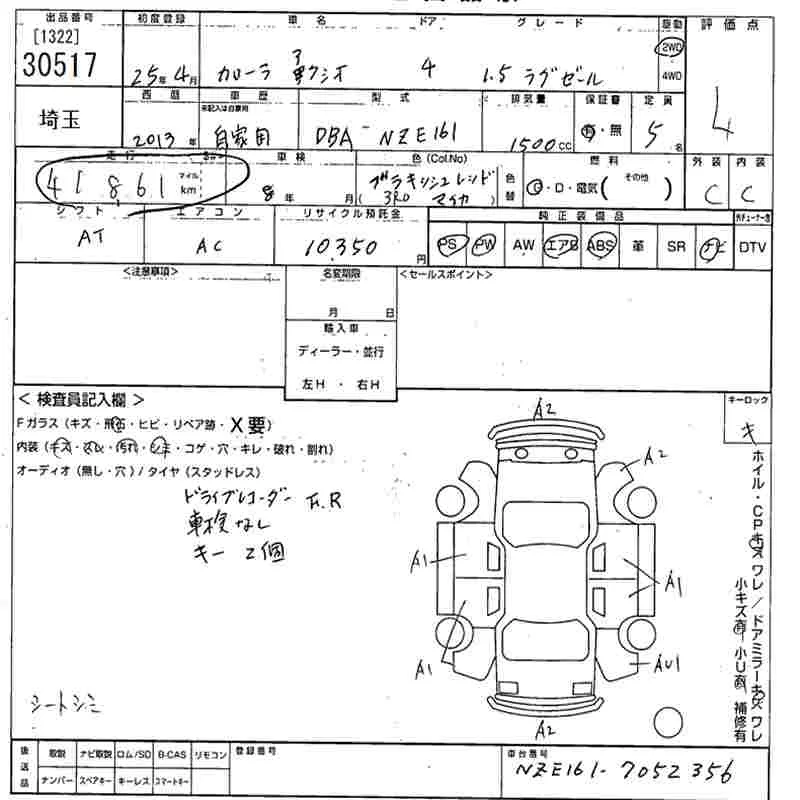 出品番号 初度登録 車名 ドア グレード 駆動 評価点
[1322]
30517
25年4月 カローラ アクシオ 4 1.5 ラグゼール 2WD 4WD 4
埼玉
西暦 車歴 型式 排気量 保証書 定員
未記入は自家用
2013年 自家用 DBA-NZE161 1500cc 有・無 5名
走行 車検 色(Col.No) 燃料 外装 内装
41,861 マイル km 年 月 ( 3R0 マイカ ) 色替 G・D・電気( その他 ) C C
シフト エアコン リサイクル預託金 純正装備品
AT AC 10,350円 PS PW AW エアB ABS 革 SR ナビ DTV
<注意事項> 名変期限 <セールスポイント>
月 日
輸入車
ディーラー・並行
左H・右H
<検査員記入欄> キーロック
キ
Fガラス(キズ・飛石・ヒビ・リペア跡・X要)
内装(キズ・ヨレ・汚れ・シミ・コゲ・穴・キレ・破れ・割れ)
オーディオ(無し・穴)/タイヤ(スタッドレス)
ドライブレコーダー F.R
車検なし
キー2個
シートシミ
A2
A2
A1 A1
A1 AU1
A2
ホイル・CPキズワレ/ドアミラーキズワレ
小キズ有 小U有 補修有
後送品 取説 ナビ取説 ロム/SD B-CAS リモコン 登録番号 車台番号
ナンバー スペアキー キーレス スマートキー NZE161-7052356